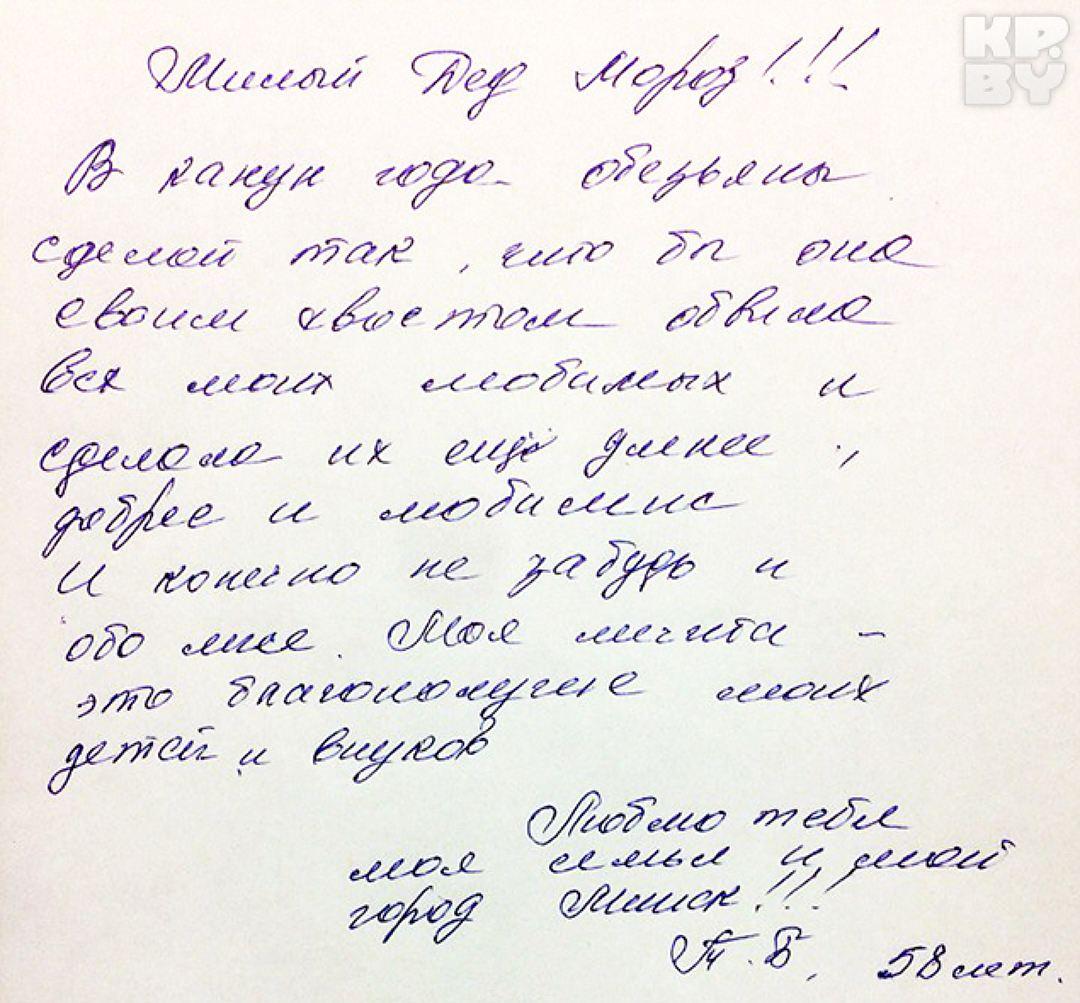 КР.
BY
Милый Дед Мороз!!!
В канун года обезьяны
сделай так, что бы она
своим хвостом обвила
всех моих любимых и
сделала их ещё умнее,
добрее и любимие
И конечно не забудь и
обо мне. Моя мечта –
это благополучие моих
детей и внуков
Люблю тебя
моя семья и мой
город Минск!!!
Т.Б. 58 лет.